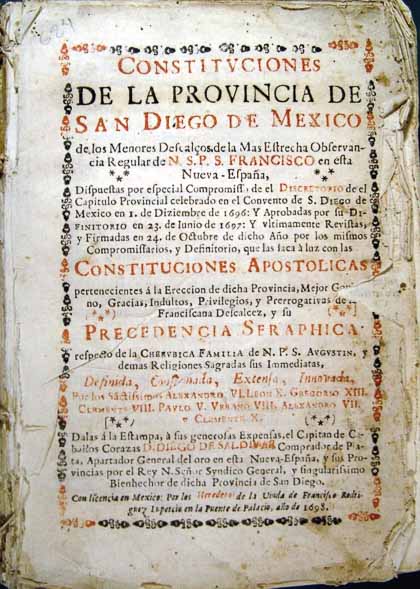 CONSTITVCIONES
DE LA PROVINCIA DE
SAN DIEGO DE MEXICO
de los Menores Descalços, de la Mas Estrecha Observan-
cia Regular de N. S. P. S. FRANCISCO en esta
Nueva-España,
Dispuestas por especial Compromiss, de el DISCRETORIO de el
Capitulo Provincial celebrado en el Convento de S. DIEGO de
Mexico en 1. de Diziembre de 1696: Y Aprobadas por su DI-
FINITORIO en 23. de Iunio de 1697: Y vltimamente Revistas,
y Firmadas en 24. de Octubre de dicho Año por los mismos
Compromissarios, y Definitorio, que las saca à luz con las
CONSTITUCIONES APOSTOLICAS
pertenecientes á la Ereccion de dicha Provincia, Mejor Gov
no, Gracias, Indultos, Privilegios, y Prerrogativas de
(***) Franciscana Descalcez, y su (***)
PRECEDENCIA SERAPHICA
respecto de la CHERVBICA FAMILIA de N. P. S. AVGVSTIN, y
demas Religiones Sagradas sus Immediatas,
Definida, Confirmada, Extensa, Innovada,
Por los Sãctissimos ALEXANDRO VI. LEON X. GREGORIO XIII.
CLEMENTE VIII. PAVLO V. VRBANO VIII. ALEXANDRO VII.
(***) Y CLEMENTE X. (***)
Dalas á la Estampa, á sus generosas Expensas, el Capitan de Ca-
ballos Corazas D. DIEGO DE SALDIVAR Comprador de Pla-
ta, Apartador General del oro en esta Nueva-España, y sus Pro-
vincias por el Rey N. Señor Syndico General, y singularissimo
Bienhechor de dicha Provincia de San Diego.
Con licencia en Mexico: Por los Herederos de la Viuda de Francisco Rodri-
guez Lupercio en la Puente de Palacio, año de 1698.